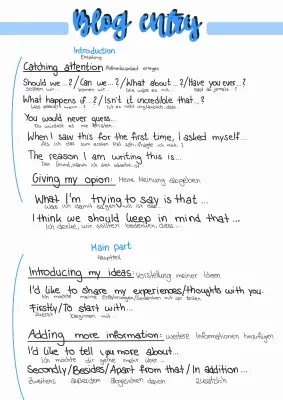 Blog entry
Introduction
Einleitung
Catching attention Aufmerksamkeit erregen
Should we...?/Can we...?/What about...?/Have you ever...?
Sollten wir... Können wir... Wie wäre es mit... Hast du jemals...?
What happens if...?/Isn't it incredible that...?
Was passiert wenn...? Ist es nicht unglaublich, dass
You would never guess...
Du würdest es nie erraten
When I saw this for the first time, I asked myself...
Als ich das zum ersten Mal sah, fragte ich mich
The reason I am writing this is...
Der Grund, warum ich dies schreibe
Giving my opion: Meine Meinung abgeben
What I'm trying to say is that...
Was ich damit sagen will ist
I think we should keep in mind that...
Ich denke, wir sollten bedenken, dass...
Main part
Hauptteil
Introducing my ideas: Vorstellung meiner Ideen
I'd like to share my experiences/thoughts with you.
Ich möchte meine Erfahrungen/Gedanken mit dir teilen
Firstly/To start with...
Zuerst beginnen mit
Adding more information: weitere Informationen hinzufügen
I'd like to tell you more about...
Ich möchte dir gerne mehr über...
Secondly/Besides/Apart from that/In addition...
Zweitens außerdem abgesehen davon zusätzlich